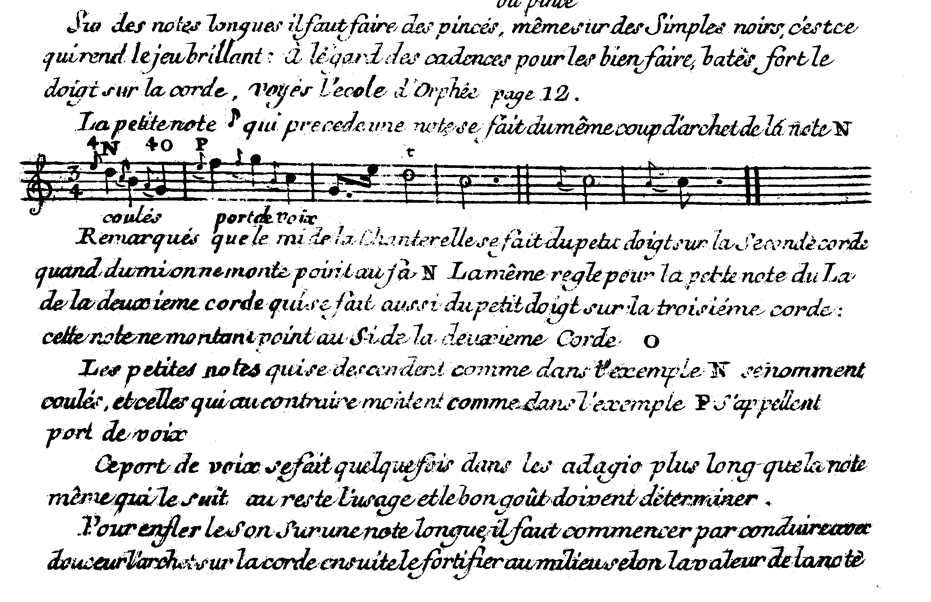 ou pincé
Sur des notes longues il faut faire des pincés, même sur des Simples noirs, c'est ce
qui rend le jeu brillant: à légard des cadences pour les bien faire, batès fort le
doigt sur la corde, voyés l'ecole d'Orphée page 12.
La petite note qui precede une note se fait du même coup d'archet de la note N
4 N 4 O P t
3
4
coulés port de voix
Remarqués que le mi de la Chanterelle se fait du petit doigt sur la Seconde corde
quand du mi on ne monte point au fa N La même regle pour la petite note du La
de la deuxieme corde qui se fait aussi du petit doigt sur la troisiéme corde:
cette note ne montant point au Si de la deuxieme Corde O
Les petites notes qui se descendent comme dans l'exemple N se nomment
coulés, et celles qui au contraire montent comme dans l'exemple P s'appellent
port de voix
Ce port de voix se fait quelquefois dans les adagio plus long que la note
même qui le suit au reste l'usage et le bon goût doivent déterminer.
Pour enfler le Son Sur une note longue, il faut commencer par conduire avec
douceur l'archet sur la corde ensuite le fortifier au milieu selon la valeur de la note